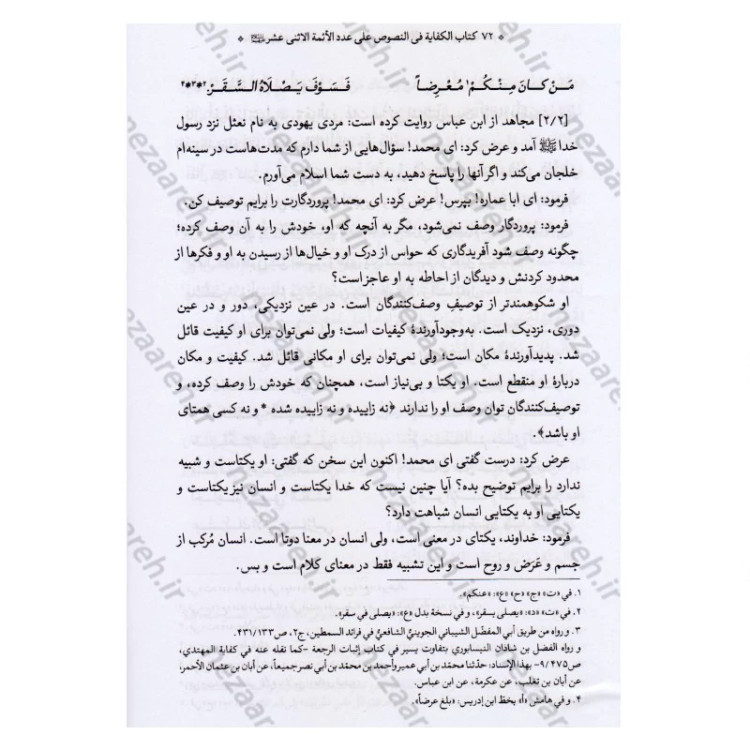 * ۷۲ کتاب الکفایة فی النصوص علی عدد الأئمة الاثنی عشر ﷺ *
مَن کانَ مِنکُم۱ مُعْرِضاً فَسَوْفَ یَصْلَاهُ السَّقَرْ۲*۳*۴
[۲/۲] مجاهد از ابن عباس روایت کرده است: مردی یهودی به نام نعثل نزد رسول
خدا ﷺ آمد و عرض کرد: ای محمد! سؤال‌هایی از شما دارم که مدت‌هاست در سینه‌ام
خلجان می‌کند و اگر آنها را پاسخ دهید، به دست شما اسلام می‌آورم.
فرمود: ای ابا عماره! بپرس! عرض کرد: ای محمد! پروردگارت را برایم توصیف کن.
فرمود: پروردگار وصف نمی‌شود، مگر به آنچه که او، خودش را به آن وصف کرده؛
چگونه وصف شود آفریدگاری که حواس از درک او و خیال‌ها از رسیدن به او و فکرها از
محدود کردنش و دیدگان از احاطه به او عاجز است؟
او شکوهمندتر از توصیفِ وصف‌کنندگان است. در عین نزدیکی، دور و در عین
دوری، نزدیک است. به‌وجودآورندۀ کیفیات است؛ ولی نمی‌توان برای او کیفیت قائل
شد. پدیدآورندۀ مکان است؛ ولی نمی‌توان برای او مکانی قائل شد. کیفیت و مکان
دربارۀ او منقطع است. او یکتا و بی‌نیاز است، همچنان که خودش را وصف کرده، و
توصیف‌کنندگان توان وصف او را ندارند ﴿نه زاییده و نه زاییده شده * و نه کسی همتای
او باشد﴾.
عرض کرد: درست گفتی ای محمد! اکنون این سخن که گفتی: او یکتاست و شبیه
ندارد را برایم توضیح بده؟ آیا چنین نیست که خدا یکتاست و انسان نیز یکتاست و
یکتایی او به یکتایی انسان شباهت دارد؟
فرمود: خداوند، یکتای در معنی است، ولی انسان در معنا دوتا است. انسان مُرکب از
جسم و عَرَض و روح است و این تشبیه فقط در معنای کلام است و بس.
۱. في «ت» «ج» «ح» «ع»: «عنکم».
۲. في «ت» «د»: «یصلی بسقر»، و في نسخة بدل «ع»: «یصلی في سقر».
۳. و رواه من طریق أبي المفضّل الشیباني الجوینيّ الشافعيّ في فرائد السمطین، ج۲، ص۴۳۱/۱۳۳.
و رواه الفضل بن شاذان النیسابوري بتفاوت یسیر في کتاب إثبات الرجعة -کما نقله عنه في کفایة المهتدي،
ص۹/۴۷۵- بهذا الإسناد: حدّثنا محمّد بن أبي عمیر وأحمد بن محمّد بن أبي نصر جمیعاً، عن أبان بن عثمان الأحمر،
عن أبان بن تغلب، عن عکرمة، عن ابن عباس.
۴. و في هامش «أ» بخطّ ابن إدریس: «بلغ عرضاً».
nezaareh.ir